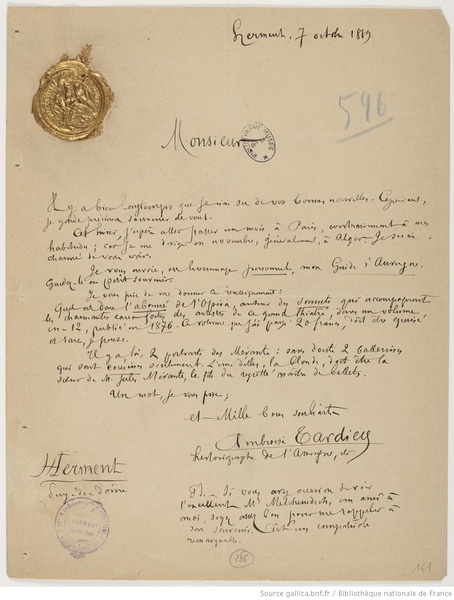 Herment, 7 octobre 1889
596
Monsieur
Il y a bien longtemps que je n'ai eu de vos bonnes nouvelles. Cependant,
je garde précieux souvenir de vous.
Cet hiver, j'espère aller passer un mois à Paris, contrairement à mes
habitudes; car je me dirige en novembre, généralement, à Alger. Je serai
charmé de vous voir.
Je vous envoie, en hommage personnel, mon Guide d'Auvergne.
Gardez-le en petit souvenir.
Je vous prie de me donner ce renseignement:
Quel est donc l'abonné de l'Opéra, auteur des sonnets qui accompagnent
les charmantes eaux fortes des artistes de ce grand théâtre, dans un volume
in-12, publié en 1876. Ce volume que j'ai payé 20 francs, doit être épuisé
et rare, je pense.
Il y a là, 2 portraits des Mérante: sans doute 2 ballerines
qui sont cousines seulement. L'une d'elles, la blonde, doit être la
sœur de M. Jules Mérante, le fils du regretté maître de ballets.
Un mot, je vous prie;
et Mille bons souhaits
Ambroise Tardieu
historiographe de l'Auvergne, etc
Herment
Puy-de-Dôme
P.S. Si vous avez occasion de voir
l'excellent Mr , un ami à
moi, soyez assez bon pour me rappeler à
son souvenir. C'est un compatriote
remarquable.
161
Source gallica.bnf.fr / Bibliothèque nationale de France